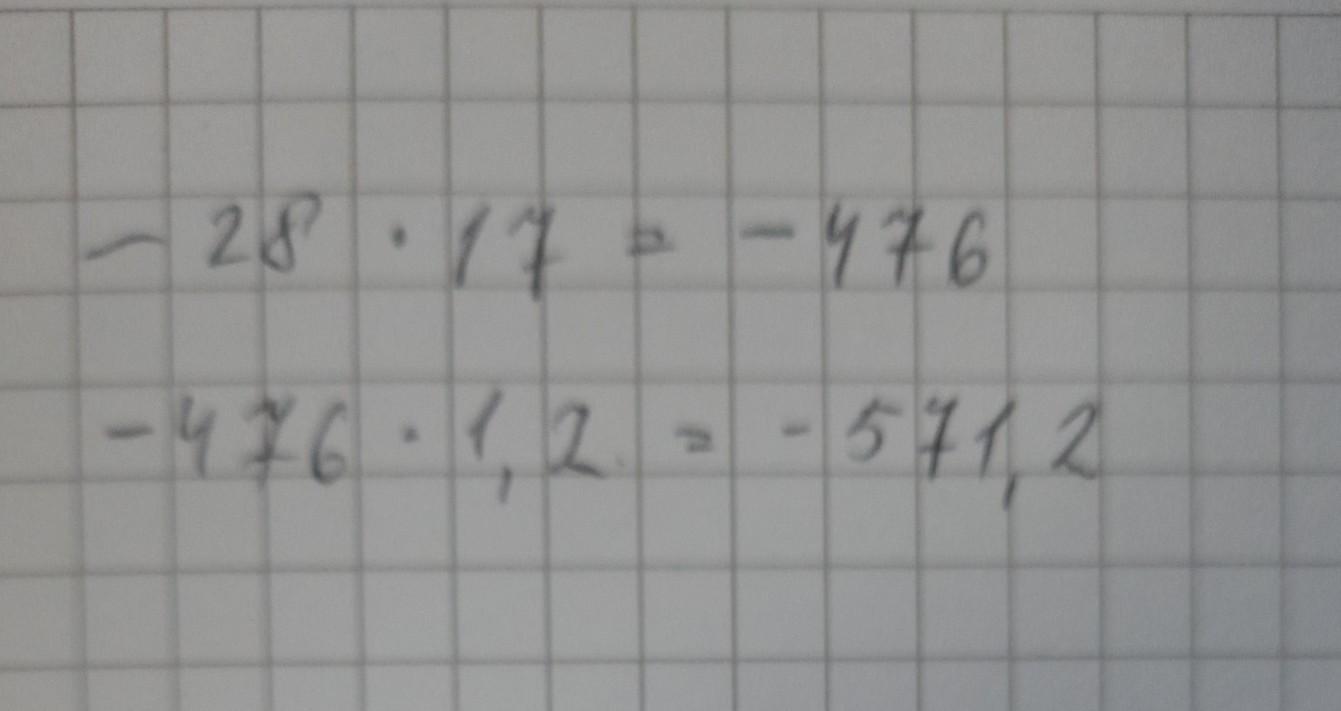 - 28 · 17 = - 476
- 476 · 1,2 = - 571,2